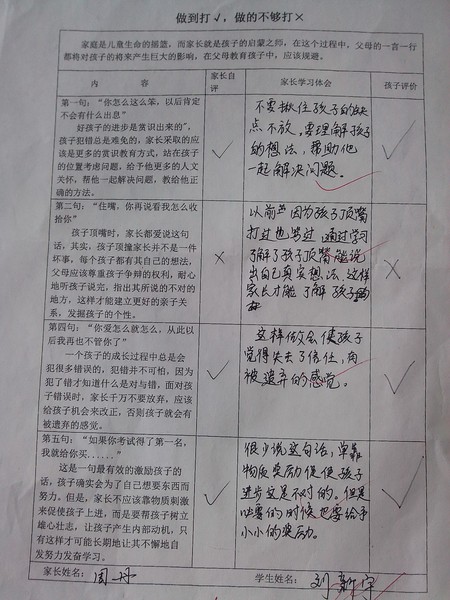 做到打√，做的不够打×
家庭是儿童生命的摇篮，而家长就是孩子的启蒙之师，在这个过程中，父母的一言一行
都将对孩子的将来产生巨大的影响，在父母教育孩子中，应该规避。
内 容
家长自评
家长学习体会
孩子评价
第一句：“你怎么这么笨，以后肯定
不会有什么出息”
好孩子的进步是赏识出来的”，
孩子犯错总是难免的，家长采取的应
该是更多的赏识教育方式，站在孩子
的位置考虑问题，给予他更多的人文
关怀，帮他一起解决问题，教给他正
确的方法。
√
不要揪住孩子的缺
点不放，要理解孩子
的想法，帮助他
一起解决问题。
√
第二句：“住嘴，你再说看我怎么收
拾你”
孩子顶嘴时，家长都爱说这句
话，其实，孩子顶撞家长并不是一件
坏事，每个孩子都有其自己的想法，
父母应该尊重孩子争辩的权利，耐心
地听孩子说完，指出其所说的不对的
地方，这样才能建立更好的亲子关
系，发掘孩子的个性。
×
以前因为孩子顶嘴
打过也骂过 通过学习
了解了孩子顶嘴能说
出自己真实想法，这样
家长才能了解孩子的
×
第四句：“你爱怎么就怎么，从此以
后我再也不管你了”
一个孩子的成长过程中总是会
犯很多错误的，犯错并不可怕，因为
犯了错才知道什么是对与错，面对孩
子错误时，家长千万不要放弃，应该
给孩子机会来改正，否则孩子就会有
被遗弃的感觉。
√
这样做会使孩子
觉得失去了信任，有
被遗弃的感觉。
√
第五句：“如果你考试得了第一名，
我就给你买……”
这是一句最有效的激励孩子的
话，孩子确实会为了自己想要东西而
努力。但是，家长不应该靠物质刺激
来促使孩子上进，而是要帮孩子树立
雄心壮志，让孩子产生内部动机，只
有这样才可能长期地让其不懈地自
发努力发奋学习。
√
很少说这句话，单靠
物质奖励促使孩子
进步这是不对的。但是
必要的时候也要给予
小小的奖励。
√
家长姓名： 周丹
学生姓名： 刘新宇